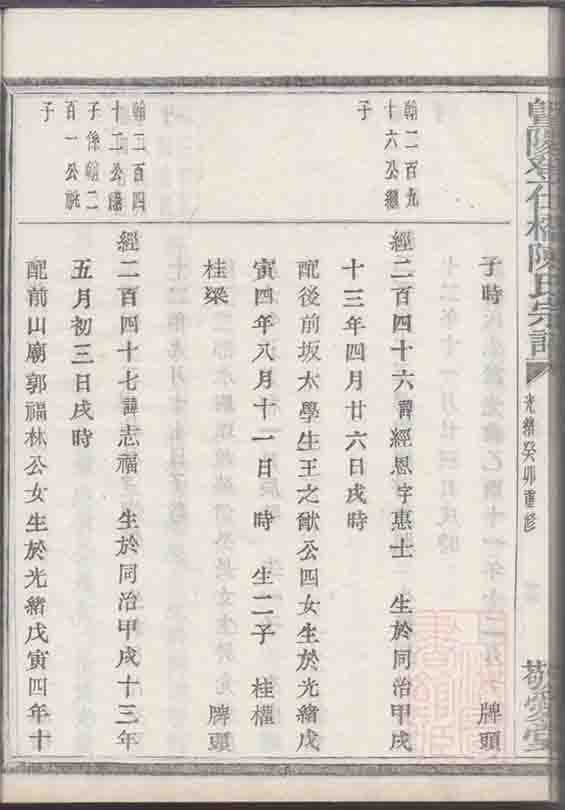 陳氏宗譜
光緒癸卯重修
敬愛堂
子時
牌頭
翰二百九
十六公繼
子
經二百四十六諱經恩字惠士 生於同治甲戌
十三年四月廿六日戌時
配後前坂太學生王之猷公四女生於光緒戊
寅四年八月十一日 時 生二子 桂權
桂梁
牌頭
翰二百四
十二公
子係翰二
百一公
子
經二百四十七諱志福 生於同治甲戌十三年
五月初三日戌時
配前山廟郭福林公女生於光緒戊寅四年十